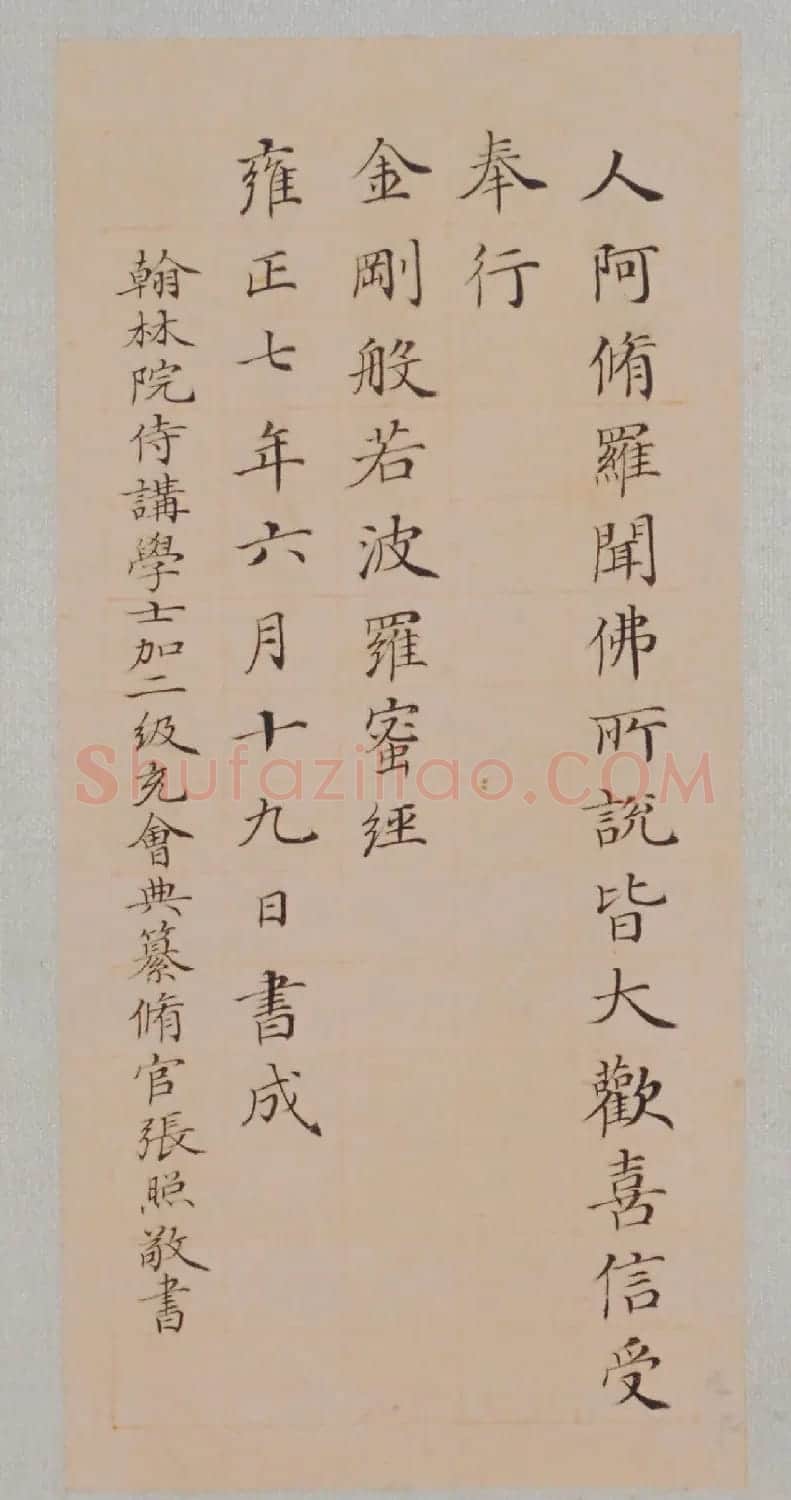 人阿脩羅聞佛所說皆大歡喜信受
奉行
金剛般若波羅蜜經
雍正七年六月十九日書成
翰林院侍講學士加二級充會典纂脩官張照敬書
Shufaziliao.COM